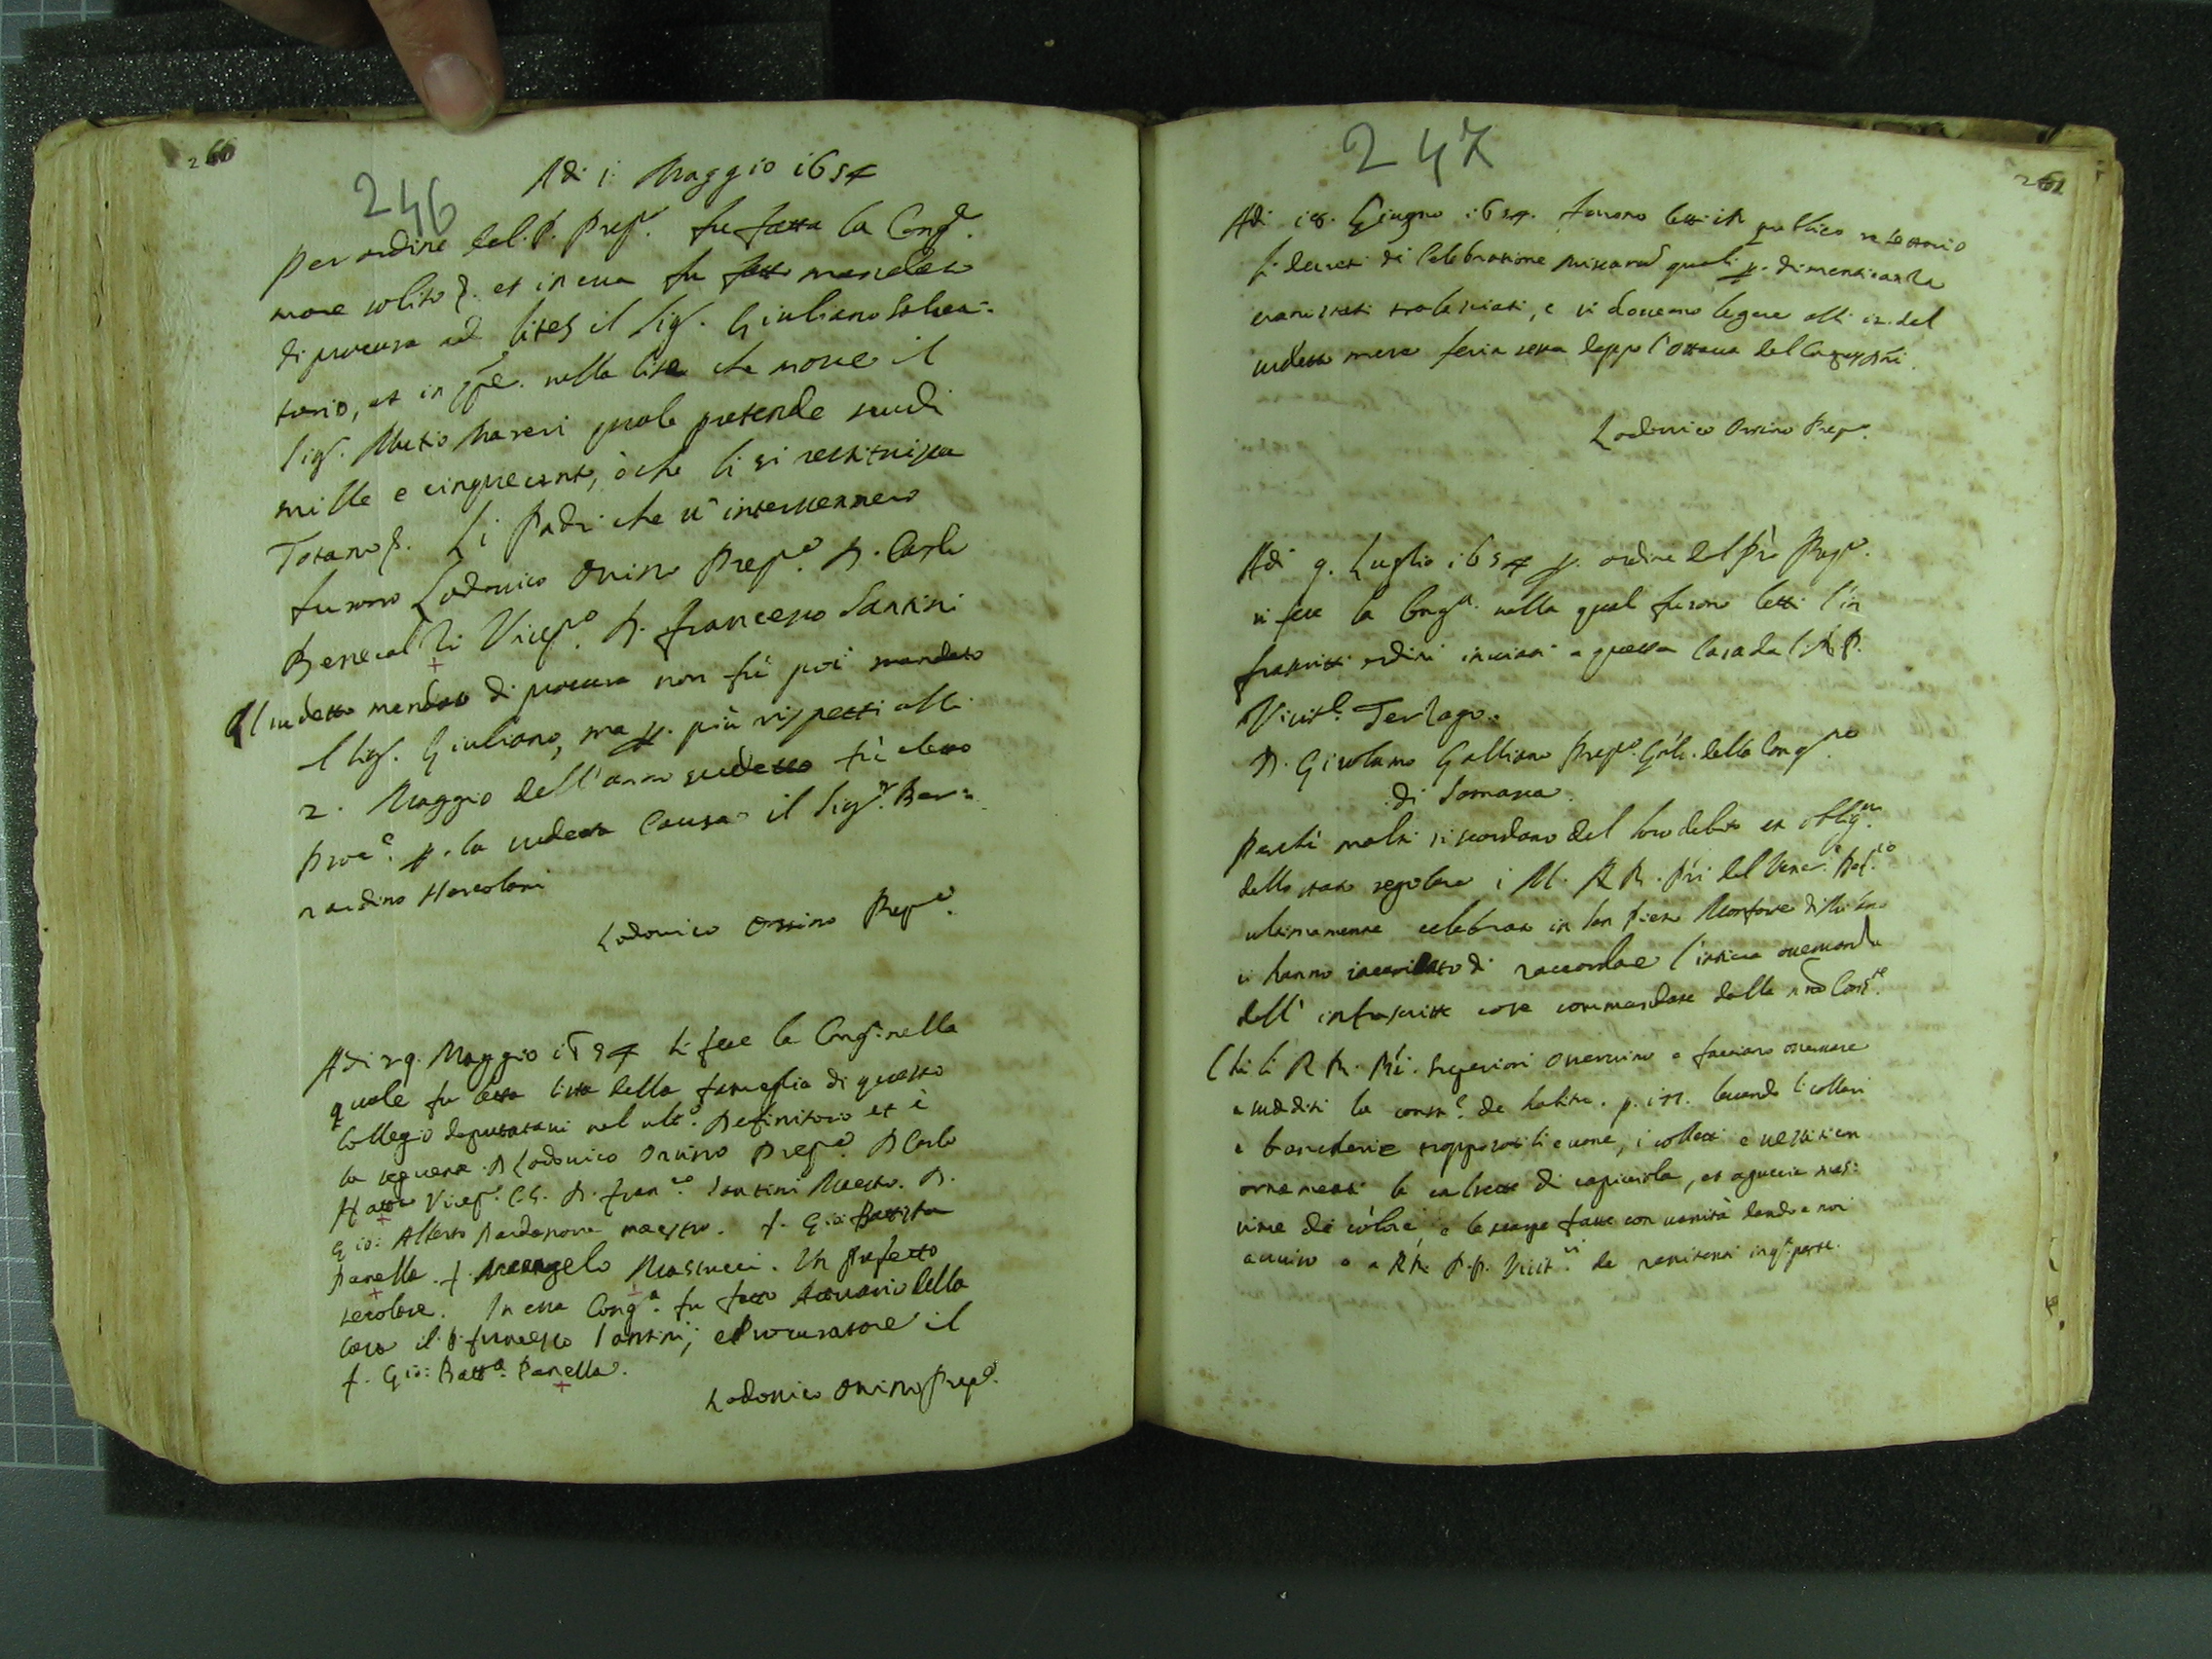 260
246
Adi i Maggio i654
Per ordine del. P. Prep.º fu fatta la Cong.e
more solito &. et in essa fu fatto mandato
di procura ad lites il Sig.r Giuliano
et in nella lite che move il
Sig.r Mutio quale pretende scudi
mille e cinquecento, ò che li si restituisca
Totano &. Li Padri che v'intervennero
furono Lodovico Orsino Prep.º D. Carlo
Vicep.º D. Francesco Santini
Il sudetto mandato di procura non fù poi mandato
al Sig.r Giuliano, ma p. più rispetti alli
2. Maggio dell'anno sudetto fù eletto
Proc.e p. la sudetta Causa il Sig.r Ber=
nardino Hercolani
Lodovico Orsino Prep.º
Adi 29. Maggio i654 Si fece la Cong. nella
quale fu letta lista della fameglia di questo
Collegio deputatavi nel ult.º Definitorio et è
la seguente. D Lodovico Orsino Prep.º D Carlo
Vicep.º C.S. D. Fran.co Santini Maestro. D.
Gio: Alberto maestro. f. Gio: Battista
Panella. f. Arcangelo Mascucci. Un Prefetto
secolare. In essa Cong.a fu fatto Attuario della
Casa il P. Francesco Santini; e Procuratore il
f. Gio: Batt.a Panella.
Lodovico Orsino Prep.º
261
247
Adi i8. Giugno i654. furono letti in publico refettorio
li decreti di Celebratione Missarum quali p. dimenticanza
erano stati tralasciati, e si doveano legere alli i2. del
sudetto mese feria sesta doppo l'ottava del Corpus Dñi.
Lodovico Orsino Prep.º
Adi 9. Luglio i654 p. ordine del Prè Prep.º
si fece la Cong.a nella qual furono letti l'in
frascritti ordini inviati a questa Casa dal M.R.P.
Visit.e Terzago.
D. Girolamo Galliano Prep.º Gñle. della Cong.ne
di Somasca.
Perche molti si scordano del loro debito et oblig.ne
dello stato regolare i M. RR. Pri del Vener.e Def.rio
ultimamente celebrato in San Pietro Monforte di Milano
ci hanno incaricato di raccordare l'intiera osservanza
dell' infrascritte cose commandate dalle nrē Cons.ne
Che li RR. Pri. Superiori osservino e facciano osservare
a sudditi la const.e de habitu. p. i71. levando li collari
e troppo sotili e vane, i colletti e
ornamenti le calzette di capiciola, et
di colore, e le scarpe fatte con vanità dando a noi
avviso o a RR. P.P. Visit.ri de renitenti in q.ta parte.